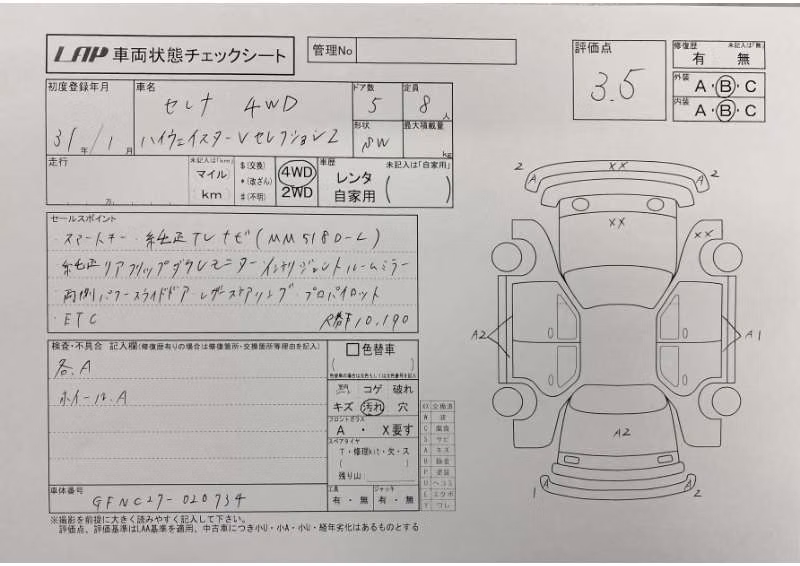 LAP 車両状態チェックシート
管理No
評価点
3.5
修復歴 未記入は「無」
有 無
外装 A・B・C
内装 A・B・C
初度登録年月
31年/1月
車名
セレナ 4WD
ハイウェイスターVセレクション2
ドア数
5
定員
8人
形状
最大積載量
kg
走行
万
未記入は「km」
マイル
km
$(交換)
*(改ざん)
#(不明)
4WD
2WD
車歴 未記入は「自家用」
レンタ
自家用
セールスポイント
・スマートキー・純正TVナビ(MM518D-L)
純正リアフリップダウンモニター インテリジェントルームミラー
両側パワースライドドア レザーステアリング プロパイロット
・ETC R券¥10,190
検査・不具合 記入欄(修復歴有りの場合は修復箇所・交換箇所等理由を記入)
各A
ホイール.A
色替車
コゲ 破れ
キズ 汚れ 穴
フロントガラス
A ・ X要す
スペアタイヤ
T・修理kit・欠・ス
残り山
工具
有・無
ジャッキ
有・無
XX 交換済
車体番号
GFNC27-020734
※撮影を前提に大きく読みやすく記入して下さい。
評価点、評価基準はLAA基準を適用、中古車につき小U・小A・小U・経年劣化はあるものとする
2
A
XX
A
2
XX
XX
A2
A1
A2
1
A
A
2